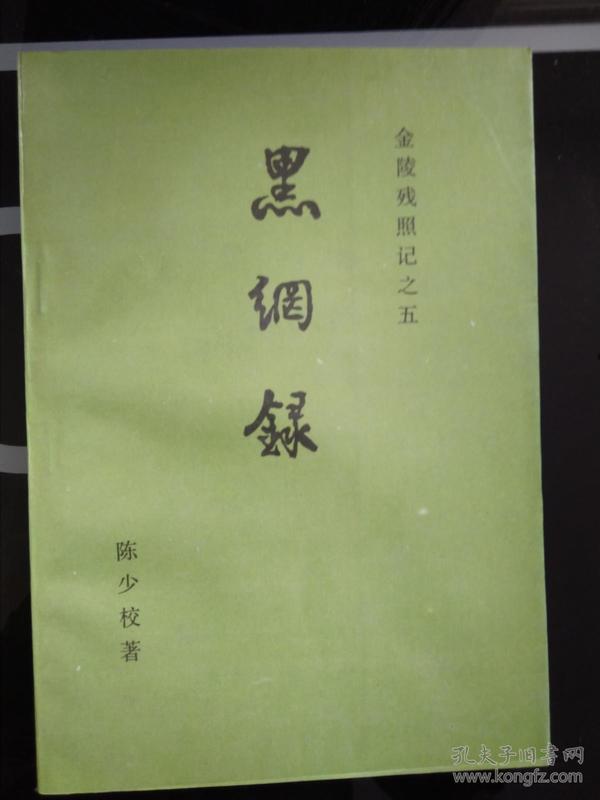 金陵残照记之五
黑網録
陈少校著
孔夫子旧书网
www.kongfz.com